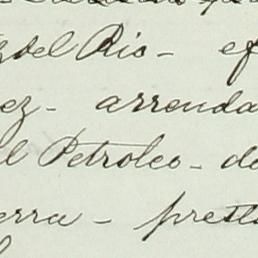 del Rio - ef
ez - arrenda
l Petroleo - de
erra - prest